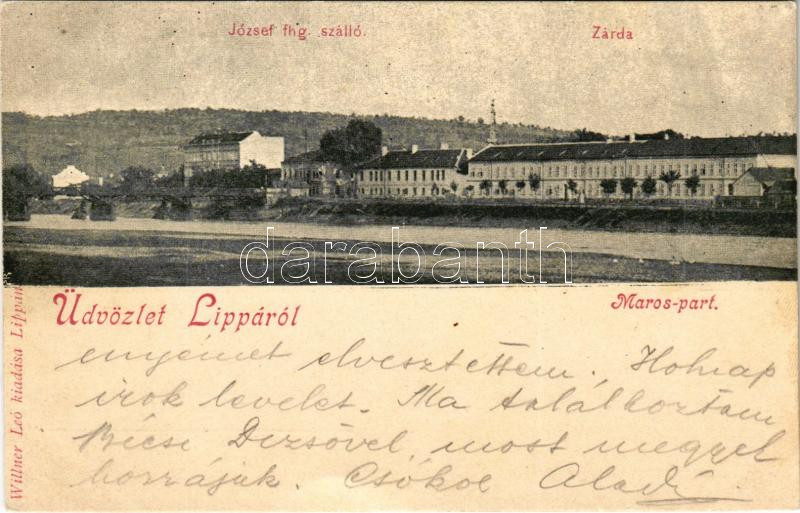 József fhg. szálló.
Zárda
darabanth
Üdvözlet Lippáról
Maros-part.
Willner Leó kiadása Lippán
enyémet elvesztettem. Holnap
irok levelet. Ma találkoztam
Bécsi Dezsővel, most megyek
hozzájuk. Csókol Aladá